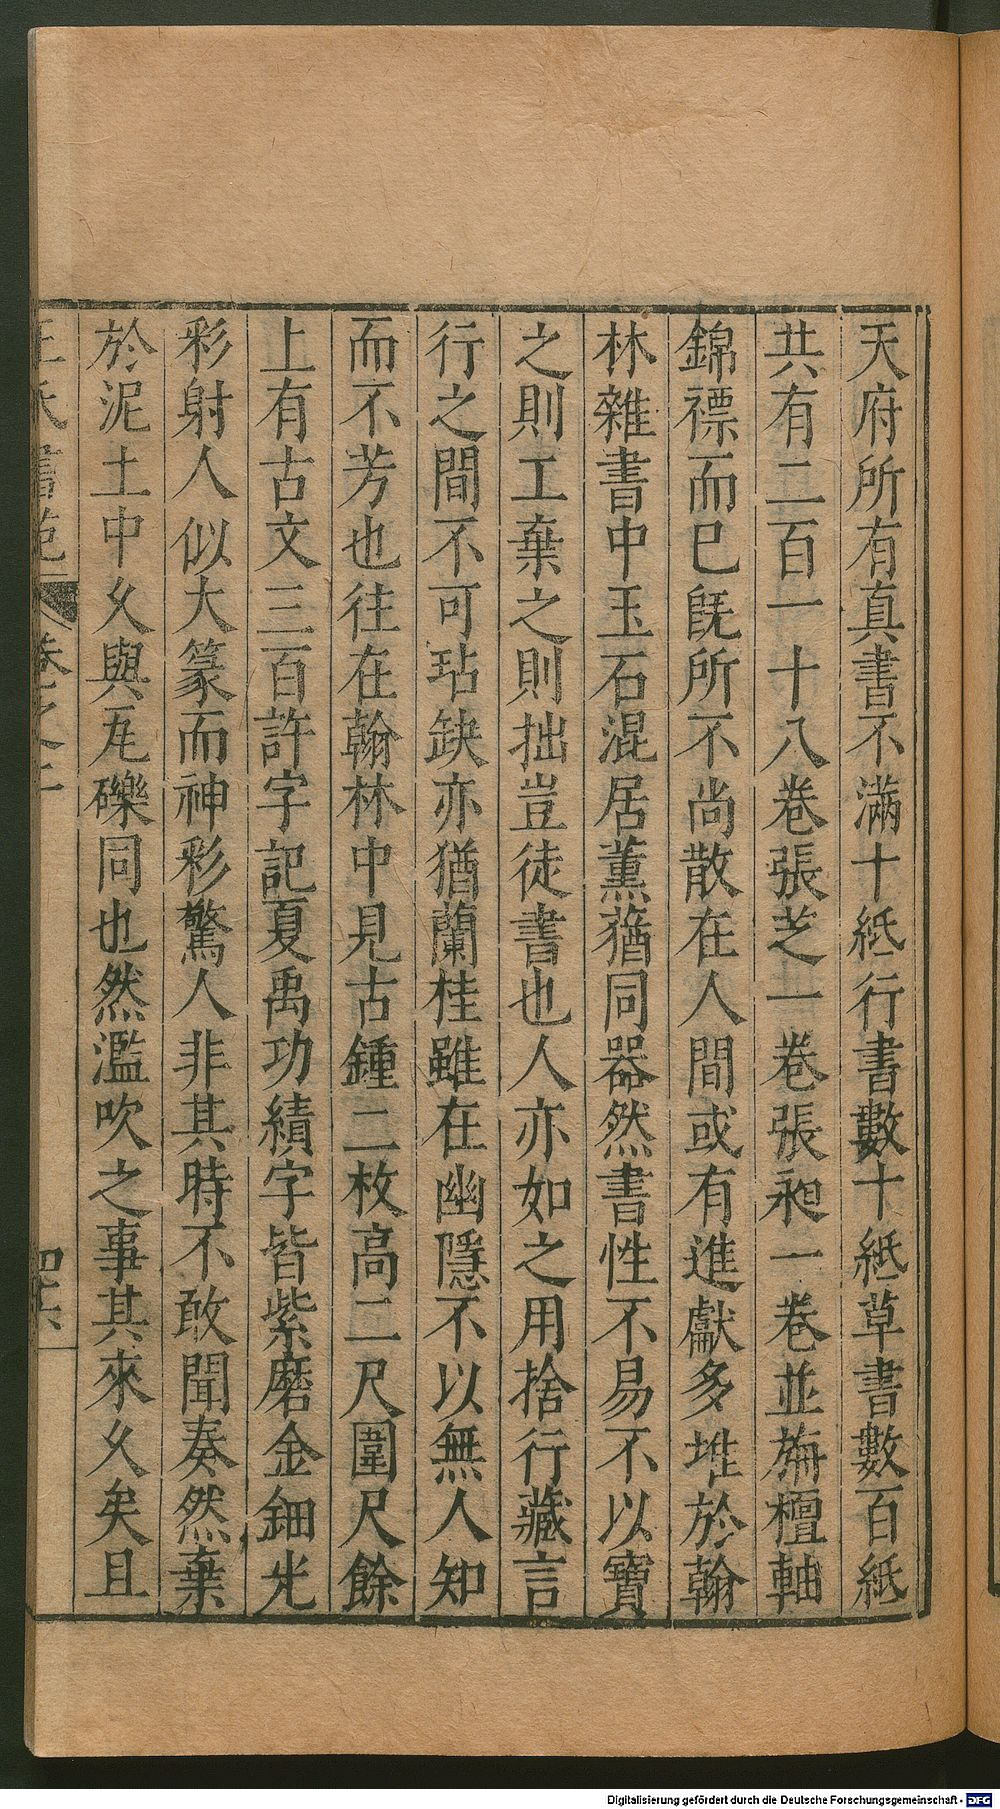 天府所有真書不滿十紙行書數十紙草書數百紙
共有二百一十八卷張芝一卷張昶一卷並旃檀軸
錦褾而巳旣所不尚散在人間或有進獻多堆於翰
林雜書中玉石混居薰蕕同器然書性不易不以寶
之則工棄之則拙豈徒書也人亦如之用捨行藏言
行之間不可玷缺亦猶蘭桂雖在幽隱不以無人知
而不芳也往在翰林中見古鍾二枚高二尺圍尺餘
上有古文三百許字記夏禹功績字皆紫磨金鈿光
彩射人似大篆而神彩驚人非其時不敢聞奏然棄
於泥土中乆與瓦礫同也然濫吹之事其來乆矣且
王氏書苑 卷之二